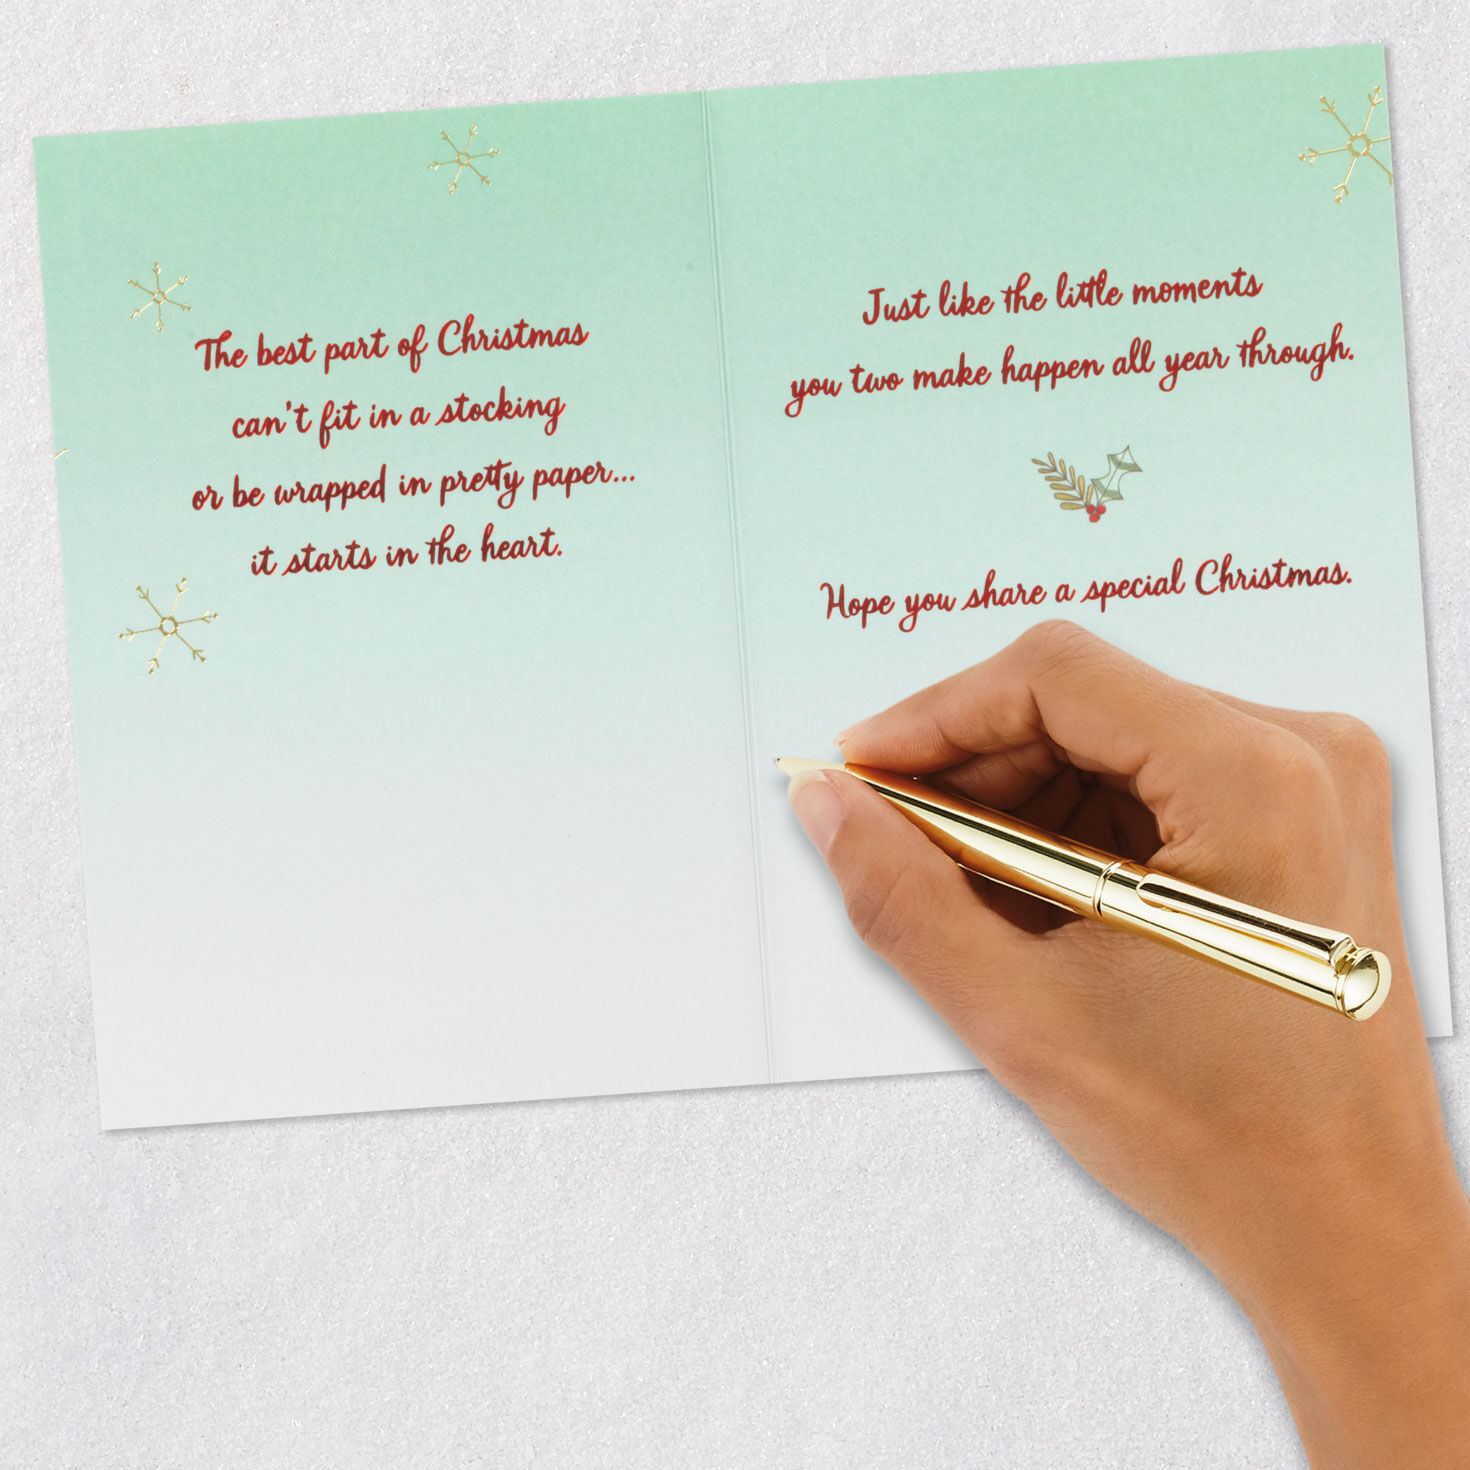 The best part of Christmas
can't fit in a stocking
or be wrapped in pretty paper...
it starts in the heart.
Just like the little moments
you two make happen all year through.
Hope you share a special Christmas.